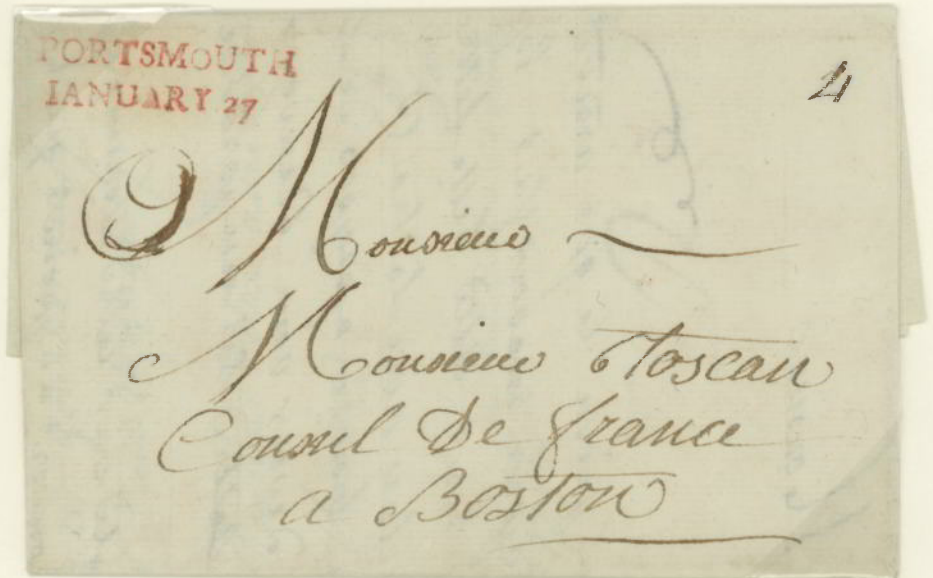 PORTSMOUTH
IANUARY 27
4
Monsieur
Monsieur Toscan
Consul De france
a Boston